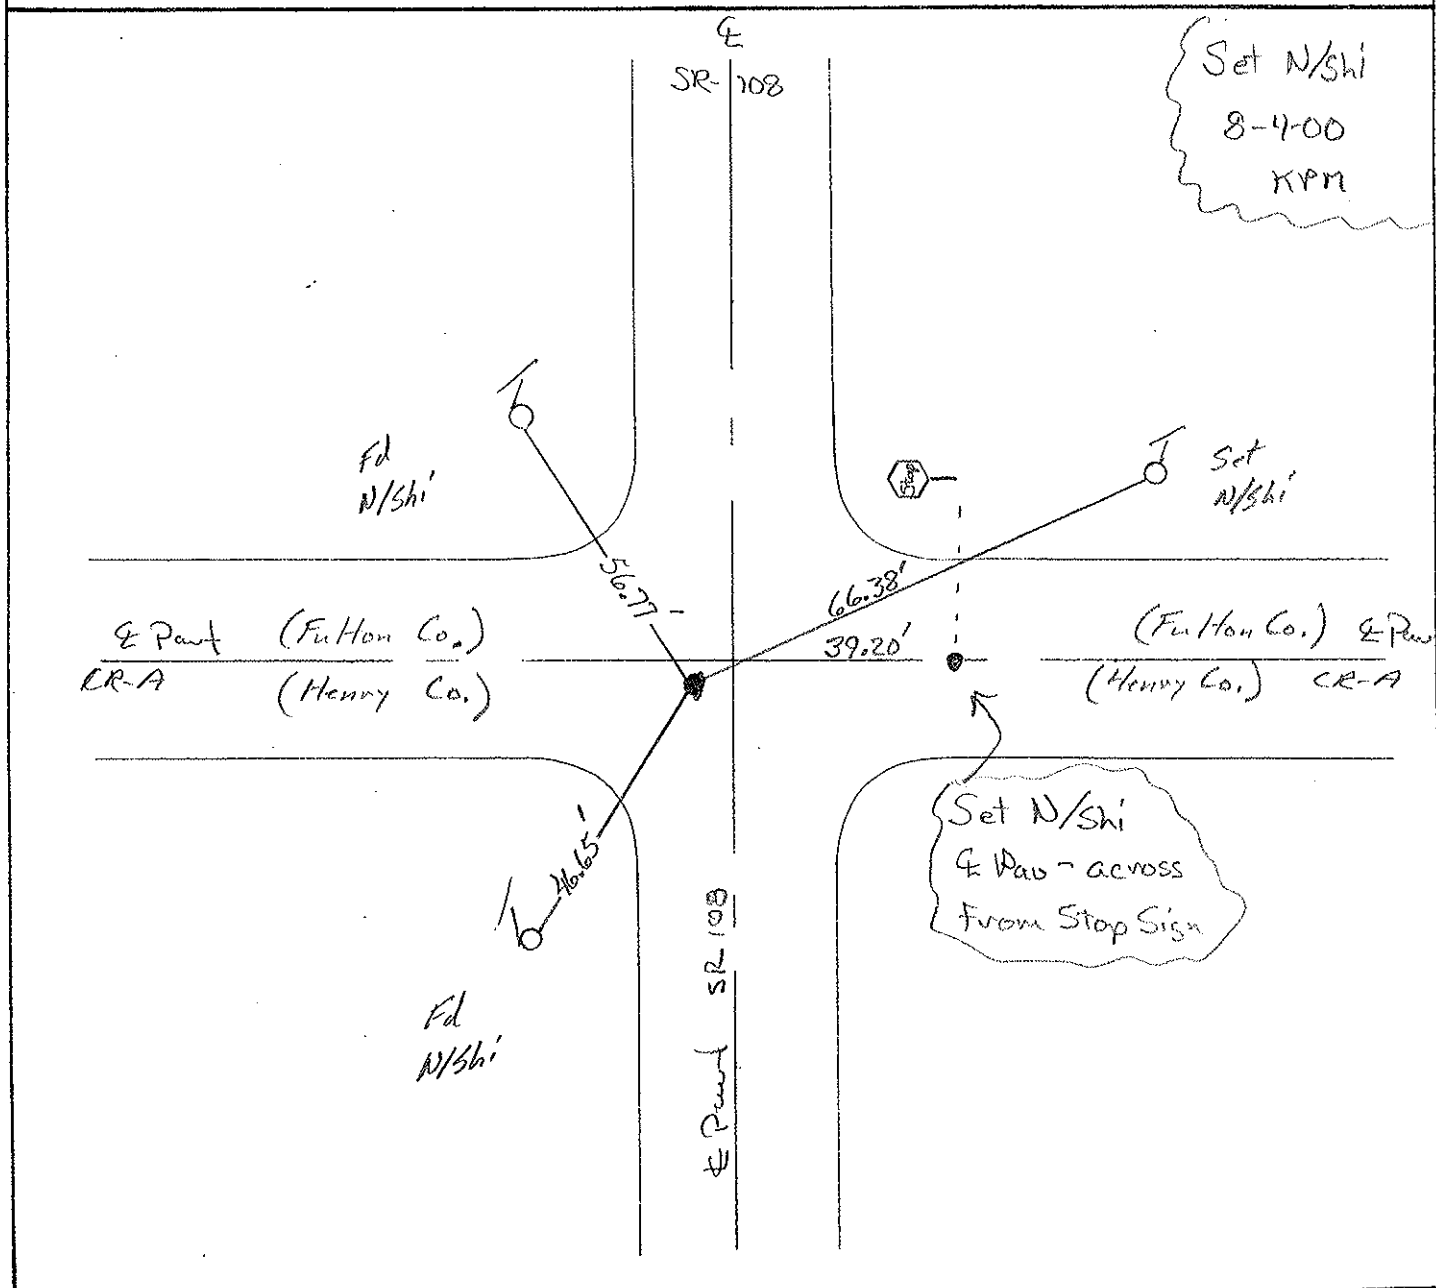 ℄
SR-108
Set N/Shi
8-4-00
KPM
Fd
N/Shi
Stop
Set
N/Shi
56.77'
66.38'
39.20'
℄ Pavt (Fulton Co.)
CR-A (Henry Co.)
(Fulton Co.) ℄ Pav
(Henry Co.) CR-A
46.65'
Set N/Shi
℄ Pav - across
From Stop Sign
℄ Pavt SR 108
Fd
N/Shi